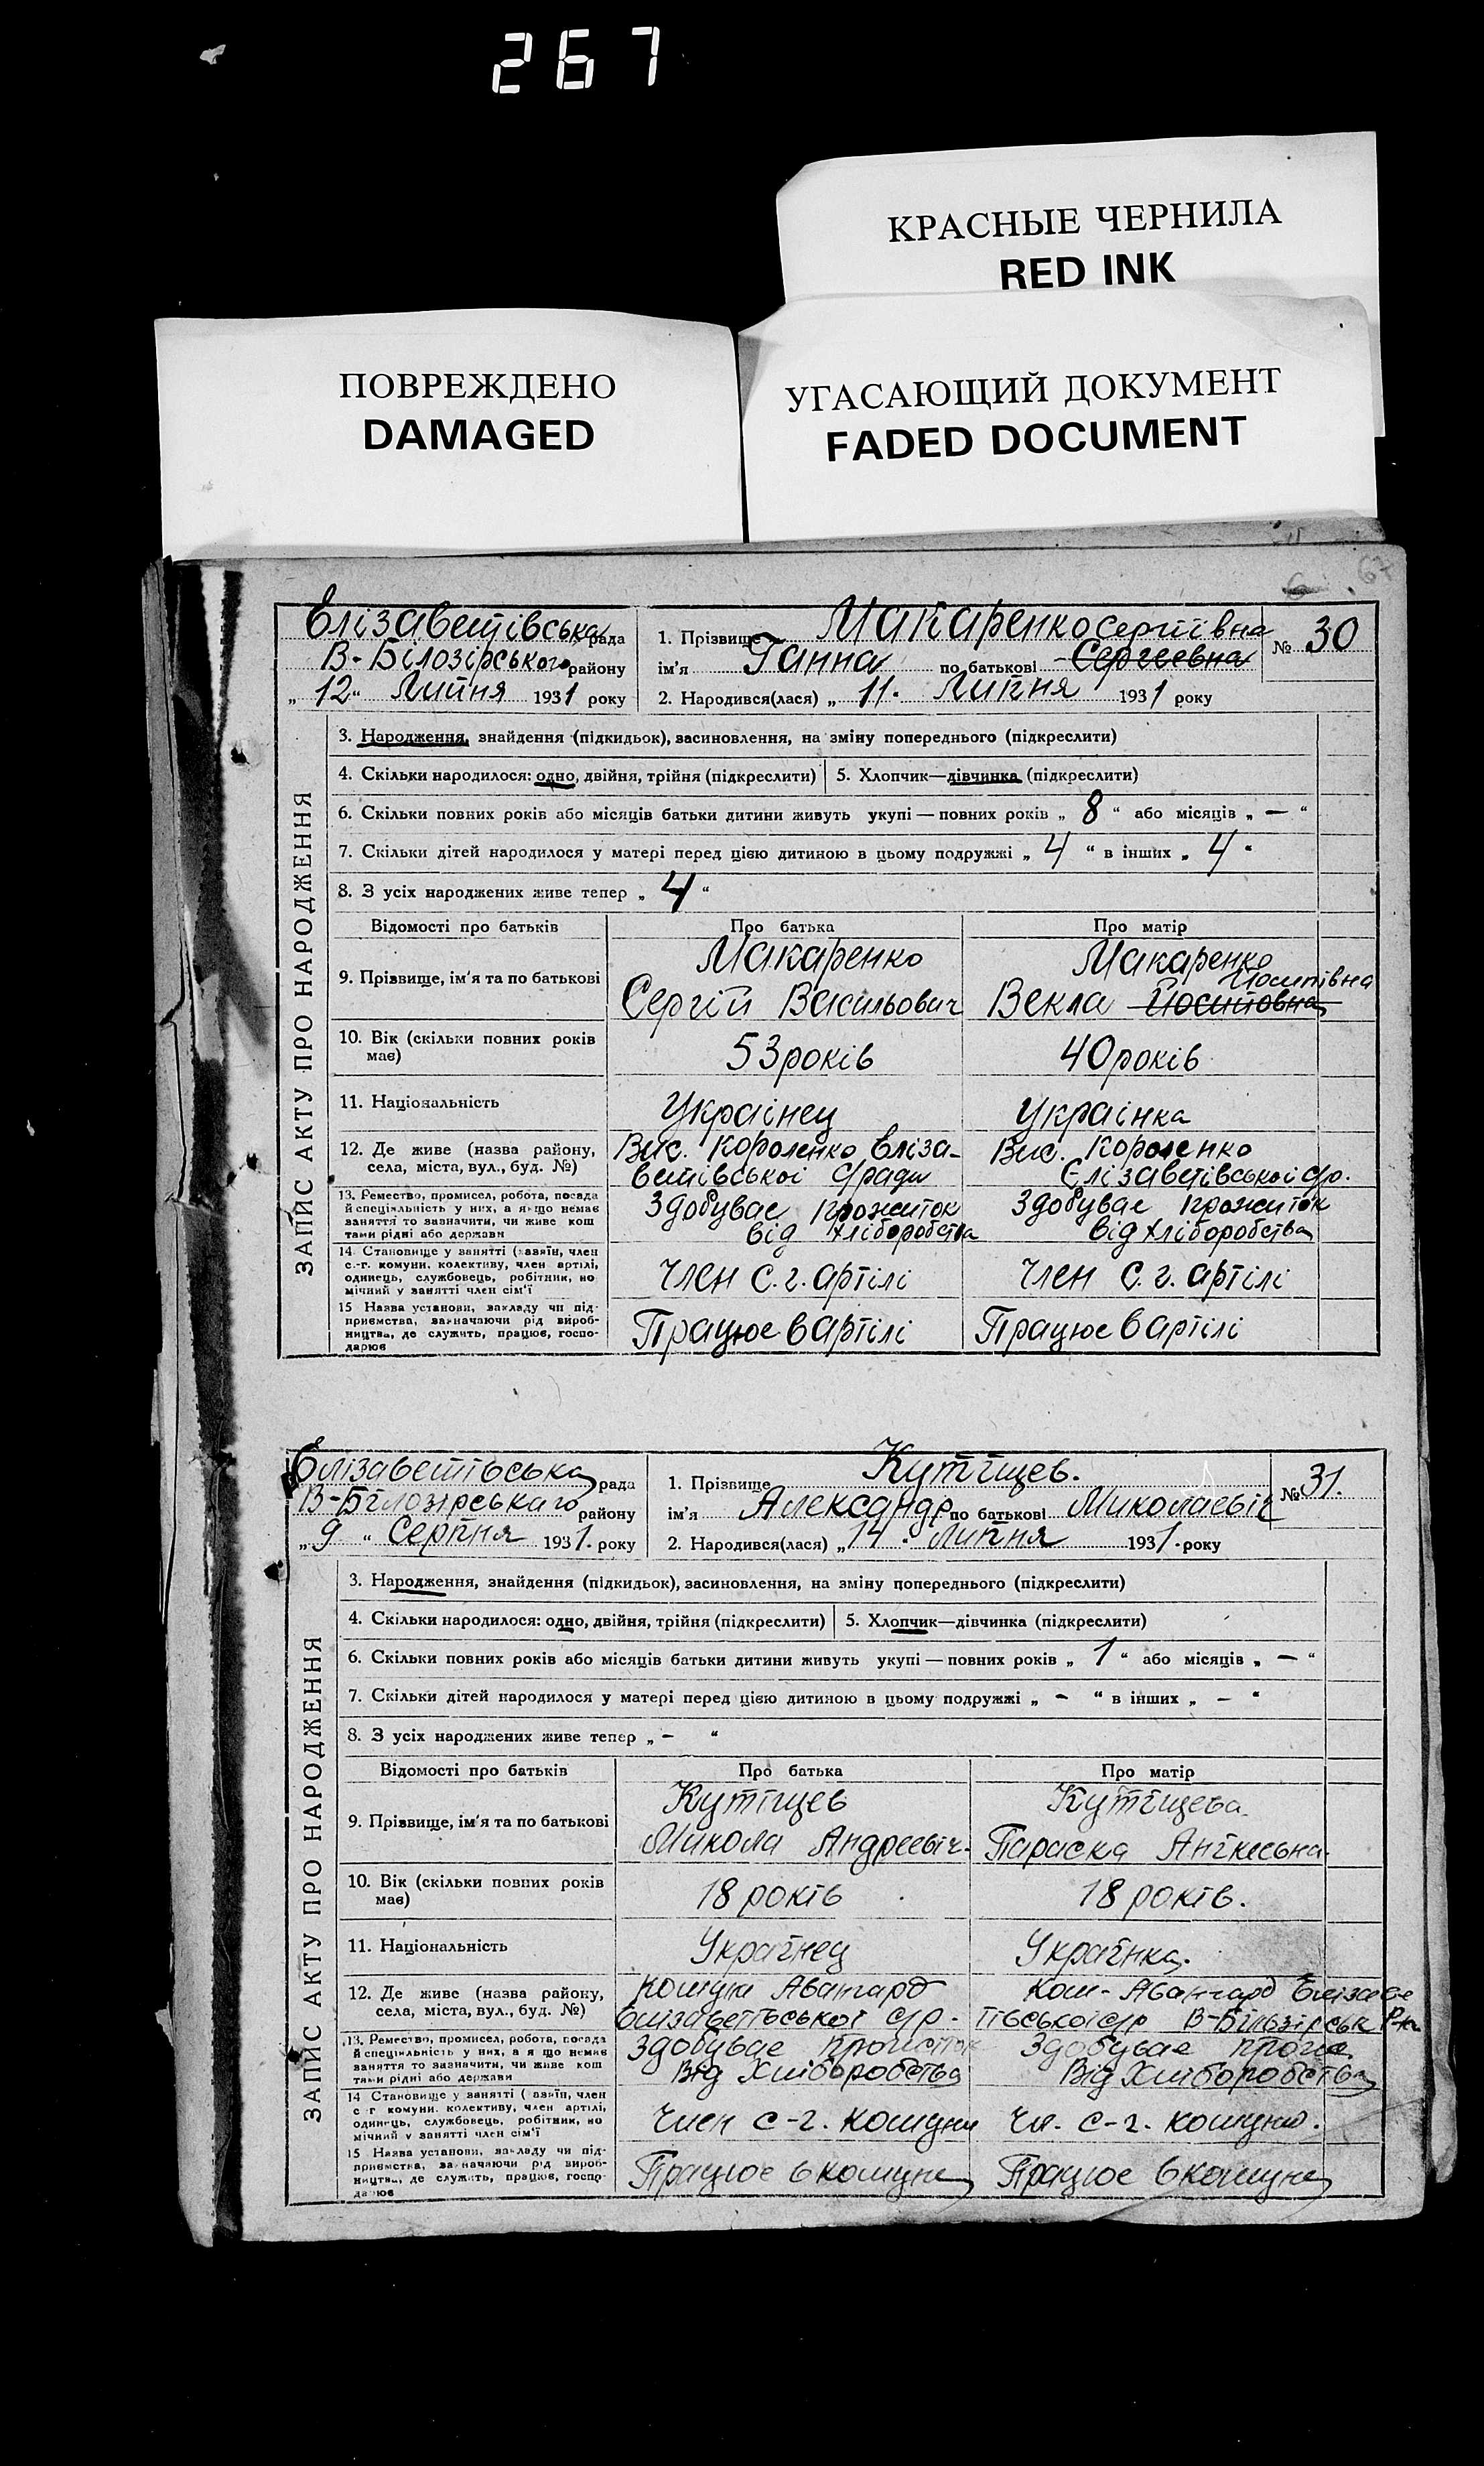 267
КРАСНЫЕ ЧЕРНИЛА
RED INK
ПОВРЕЖДЕНО
DAMAGED
УГАСАЮЩИЙ ДОКУМЕНТ
FADED DOCUMENT
67
ЗАПИС АКТУ ПРО НАРОДЖЕННЯ
Єлізаветівська рада
В-Білозірського району
„12“ Липня 1931 року
1. Прізвище Макаренко Сергіївна
ім'я Ганна по батькові Сергеевна
2. Народився(лася) „11. Липня 1931 року
№ 30
3. Народження, знайдення (підкидьок), засиновлення, на зміну попереднього (підкреслити)
4. Скільки народилося: одно, двійня, трійня (підкреслити) 5. Хлопчик—дівчинка (підкреслити)
6. Скільки повних років або місяців батьки дитини живуть укупі — повних років „ 8 “ або місяців „ — “
7. Скільки дітей народилося у матері перед цією дитиною в цьому подружжі „ 4 “ в інших „ 4 “
8. З усіх народжених живе тепер „ 4 “
Відомості про батьків Про батька Про матір
9. Прізвище, ім'я та по батькові
Макаренко
Сергій Васильович
Макаренко
Йосипівна
Векла Йосиповна
10. Вік (скільки повних років має)
53 років
40 років
11. Національність
Украінец
Украінка
12. Де живе (назва району, села, міста, вул., буд. №)
Вис. Короленко Єліза-
ветівськоі с/ради
Вис. Короленко
Єлізаветівськоі с/р.
13. Ремество, промисел, робота, посада
й спеціяльність у них, а якщо немає
заняття то зазначити, чи живе кош
тами рідні або держави
Здобувае прожиток
від хліборобства
Здобувае прожиток
від хліборобства
14 Становище у занятті (хазяїн, член
с.-г. комуни, колективу, член артілі,
одинець, службовець, робітник, по
мічний у занятті член сім'ї
Член с.г. артілі
Член с.г. артілі
15 Назва установи, закладу чи під-
приємства, зазначаючи рід вироб-
ництва, де служить, працює, госпо-
дарює
Працюе в артілі
Працюе в артілі
ЗАПИС АКТУ ПРО НАРОДЖЕННЯ
Єлізаветівська рада
В-Білозірськаго району
„9“ Серпня 1931. року
1. Прізвище Кутіщев.
ім'я Александр по батькові Миколаевіч
2. Народився(лася) „14. Липня 1931. року
№ 31.
3. Народження, знайдення (підкидьок), засиновлення, на зміну попереднього (підкреслити)
4. Скільки народилося: одно, двійня, трійня (підкреслити) 5. Хлопчик—дівчинка (підкреслити)
6. Скільки повних років або місяців батьки дитини живуть укупі — повних років „ 1 “ або місяців „ — “
7. Скільки дітей народилося у матері перед цією дитиною в цьому подружжі „ – “ в інших „ – “
8. З усіх народжених живе тепер „ – “
Відомості про батьків Про батька Про матір
9. Прізвище, ім'я та по батькові
Кутіщев
Микола Андреевіч.
Кутіщева.
Параска
10. Вік (скільки повних років має)
18 років
18 років.
11. Національність
Украінец
Украінка.
12. Де живе (назва району, села, міста, вул., буд. №)
Комуни Авангард
Єлізаветівської с/р.
Ком- Авангард Єлізаве
тівськоі с/р В-Білозірськ р-на
13. Ремество, промисел, робота, посада
й спеціяльність у них, а якщо немає
заняття то зазначити, чи живе кош
тами рідні або держави
Здобувае прожиток
Від Хліборобства
Здобувае прожи.
Від Хліборобства
14 Становище у занятті (хазяїн, член
с г комуни, колективу, член артілі,
одинець, службовець, робітник, по
мічний у занятті член сім'ї
Член с-г. комуни
Чл. с-г. комуни.
15 Назва установи, закладу чи під-
приємства, зазначаючи рід вироб-
ництва, де служить, працює, госпо-
дарює
Працюе в комуне
Працюе в комуне